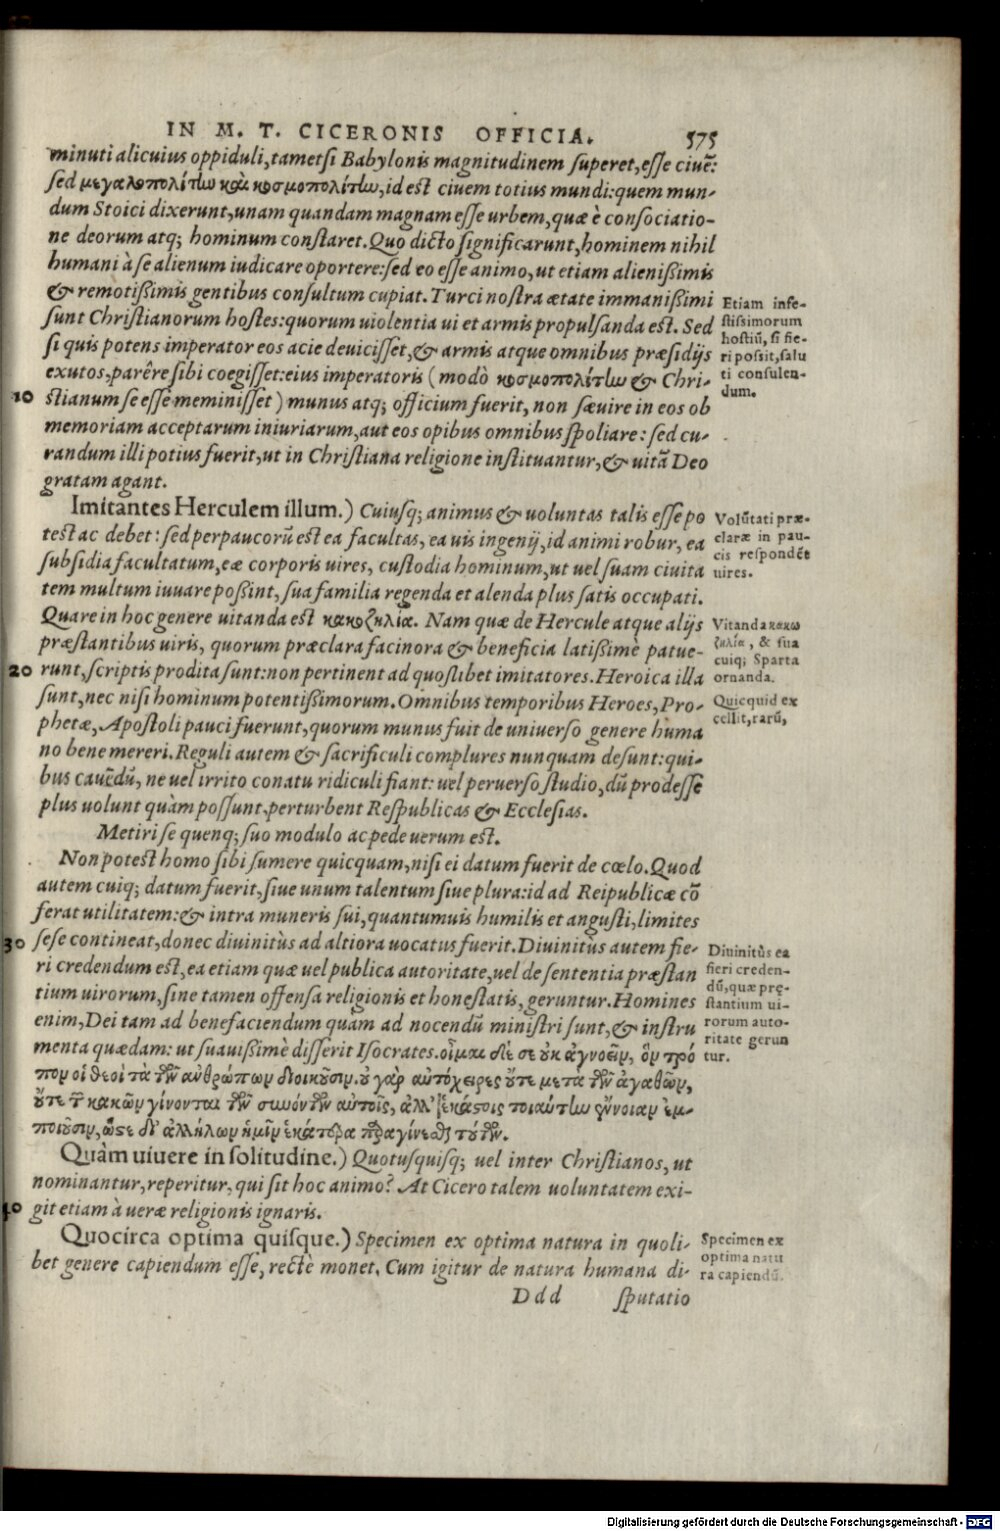 IN M. T. CICERONIS OFFICIA. 575
minuti alicuius oppiduli, tametsi Babylonis magnitudinem superet, esse ciuẽ:
sed μεγαλοπολίτην καὶ κοσμοπολίτην, id est ciuem totius mundi: quem mun-
dum Stoici dixerunt, unam quandam magnam esse urbem, quæ è consociatio-
ne deorum atq; hominum constaret. Quo dicto significarunt, hominem nihil
humani à se alienum iudicare oportere: sed eo esse animo, ut etiam alienißimis
& remotißimis gentibus consultum cupiat. Turci nostra ætate immanißimi
sunt Christianorum hostes: quorum uiolentia ui et armis propulsanda est. Sed
si quis potens imperator eos acie deuicisset, & armis atque omnibus præsidijs
exutos, parêre sibi coegisset: eius imperatoris (modò κοσμοπολίτην & Chri-
10 stianum se esse meminisset) munus atq; officium fuerit, non sæuire in eos ob
memoriam acceptarum iniuriarum, aut eos opibus omnibus spoliare: sed cu-
randum illi potius fuerit, ut in Christiana religione instituantur, & uitã Deo
gratam agant.
Etiam infe-
stissimorum
hostiũ, si fie-
ri possit, salu
ti consulen-
dum.
Imitantes Herculem illum.) Cuiusq; animus & uoluntas talis esse po
test ac debet: sed perpaucorũ est ea facultas, ea uis ingenij, id animi robur, ea
subsidia facultatum, eæ corporis uires, custodia hominum, ut uel suam ciuita
tem multum iuuare poßint, sua familia regenda et alenda plus satis occupati.
Quare in hoc genere uitanda est κακοζηλία. Nam quæ de Hercule atque alijs
præstantibus uiris, quorum præclara facinora & beneficia latißimè patue-
20 runt, scriptis prodita sunt: non pertinent ad quoslibet imitatores. Heroica illa
sunt, nec nisi hominum potentißimorum. Omnibus temporibus Heroes, Pro-
phetæ, Apostoli pauci fuerunt, quorum munus fuit de uniuerso genere huma
no bene mereri. Reguli autem & sacrificuli complures nunquam desunt: qui-
bus cauẽdũ, ne uel irrito conatu ridiculi fiant: uel peruerso studio, dũ prodesse
plus uolunt quàm possunt, perturbent Respublicas & Ecclesias.
Volũtati præ-
claræ in pau-
cis respondẽt
uires.
Vitanda κακο
ζηλία, & sua
cuiq; Sparta
ornanda.
Quicquid ex
cellit, rarũ,
Metiri se quenq; suo modulo ac pede uerum est.
Non potest homo sibi sumere quicquam, nisi ei datum fuerit de cœlo. Quod
autem cuiq; datum fuerit, siue unum talentum siue plura: id ad Reipublicæ cõ
ferat utilitatem: & intra muneris sui, quantumuis humilis et angusti, limites
30 sese contineat, donec diuinitùs ad altiora uocatus fuerit. Diuinitùs autem fie-
ri credendum est, ea etiam quæ uel publica autoritate, uel de sententia præstan
tium uirorum, sine tamen offensa religionis et honestatis, geruntur. Homines
enim, Dei tam ad benefaciendum quàm ad nocendũ ministri sunt, & instru
menta quædam: ut suauißimè disserit Isocrates. οἶμαι δέ σε οὐκ ἀγνοεῖν, ὃν τρό
πον οἱ θεοὶ τὰ τῶν ἀνθρώπων διοικοῦσιν. οὐ γὰρ αὐτόχειρες οὔτε μετὰ τῶν ἀγαθῶν,
οὔτε τῶν κακῶν γίνονται τῶν συνόντων αὐτοῖς, ἀλλ' ἑκάστοις τοιαύτην ἔννοιαν ἐμ-
ποιοῦσιν, ὥστε δι' ἀλλήλων ἡμῖν ἑκάτερα παραγίνεσθαι τούτων.
Diuinitùs ea
fieri creden-
dũ, quæ prę-
stantium ui-
rorum auto-
ritate gerun
tur.
Quàm uiuere in solitudine.) Quotusquisq; uel inter Christianos, ut
nominantur, reperitur, qui sit hoc animo? At Cicero talem uoluntatem exi-
40 git etiam à ueræ religionis ignaris.
Quocirca optima quisque.) Specimen ex optima natura in quoli-
bet genere capiendum esse, rectè monet. Cum igitur de natura humana di-
Specimen ex
optima natu
ra capiendũ.
Ddd sputatio
Digitalisierung gefördert durch die Deutsche Forschungsgemeinschaft - DFG